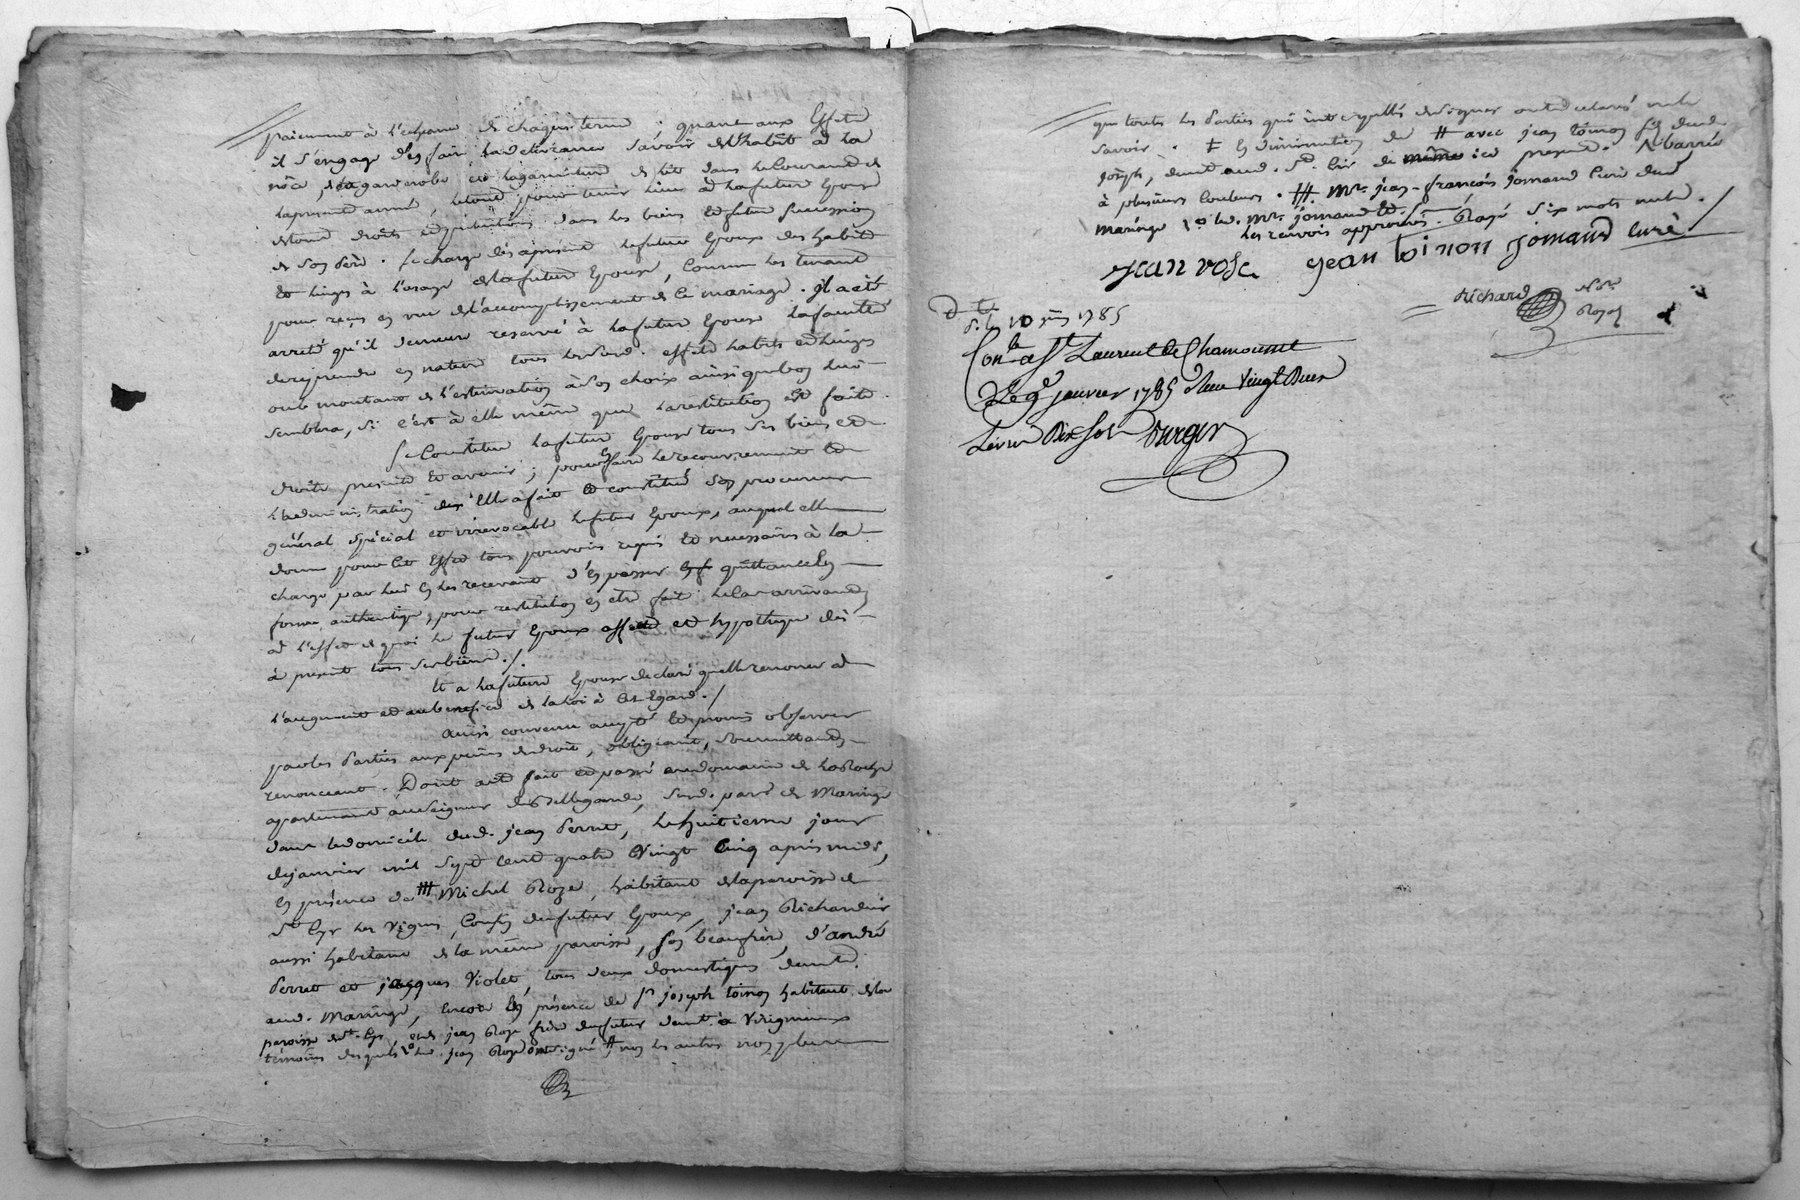 paiement à l'echeance de chaques terme ; quant aux Effets
il s'engage d'en faire la delivrance savoir de l'habit à la
nôce, de la garderobe et la garniture de lit dans le courant de
la presente année, le tout pour tenir lieu à la future Epouse
de tous droits et prétentions dans les biens et future succession
de son Père. Se charge dès à present le futur Epoux des habits
et linges à l'usage de la future Epouse, comme les tenant
pour reçus en vue de l'accomplissement de ce mariage. Il a été
arreté qu'il demeure reservé à la future Epouse la faculté
de reprendre en nature tous lesd. effets habits et linges
ou le montant de l'estimation à son choix ainsi que bon lui
semblera, si c'est à elle même que la restitution est faite.
Se Constitue la future Epouse tous ses biens et
droits presents et avenir ; pour faire le recouvrement et
l'administration desq. Elle a fait et constitué son procureur
général spécial et irrevocable le futur Epoux, auquel elle
donne pour cet effet tous pouvoirs requis et necessaires à la
charge par lui en les recevant d'en passer quittance en
forme authentique, pour restitution en etre faite le cas arrivant
à l'effet de quoi le futur Epoux affecte et hypotheque dès
à present tous ses biens ./.
Et a la future Epouse declaré qu'elle renonce à
l'augment et au benefice de la loi à cet Egard ./
Ainsi convenu accepté et promis observer
par les Parties aux peines de droit, obligeant, soumettant,
renonceant. Dont acte fait et passé au domaine de la Roche
appartenant au Seigneur de Bellegarde, sur la d. par. de Maringe
dans le domicile dud. jean Perret, le huitieme jour
de janvier mil sept cent quatre vingt cinq après midi,
en présence de # Michel Roze, habitant de la paroisse de
St Cyr les Vignes, Cousin du futur Epoux, jean Richardier
aussi habitant de la même paroisse, son beaufrère, d'andré
Perret et jacques Violet, tous deux domestiques demt.
aud. Maringe, encore en présence de Sr joseph toinon habitant de la
paroisse de St Cyr, et de jean Roze frère du futur demt. à Virigneux
témoins desquels led. jean Roze a signé # non les autres non plus
que toutes les Parties qui interpellés de signer ont declaré ne le
savoir. ‡ En diminution de # avec jean toinon fils dud.
joseph, demt aud. St. Cir de même ici present. Λ barré
à plusieurs couleurs. ‡‡. Mre. jean-françois jomand Curé dud
maringe led. Mre. jomand et.
les renvois approuvés. Rayé six mots nuls ./
jean rose jean toinon jomand curé
Richard Nre
Royal
10 1785
Con.lé à St Laurent de Chamousset
Le 9 janvier 1785 Reçu vingt Deux
Livres Dix Sols Durger